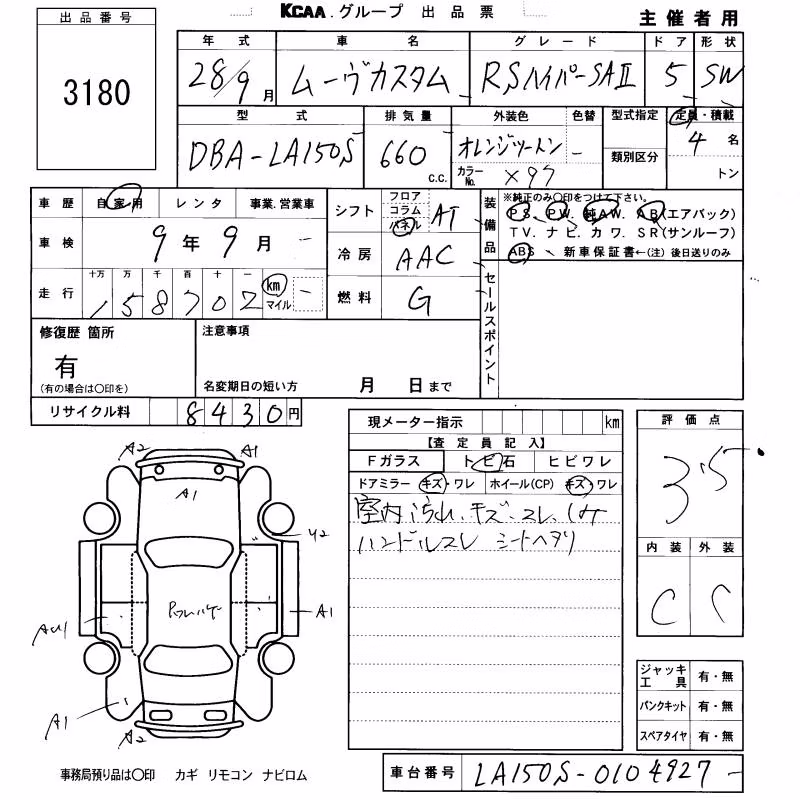 KCAA.グループ 出品票
主催者用
出品番号
3180
年式 車名 グレード ドア 形状
28/9月 ムーヴカスタム RSハイパーSAⅡ 5 SW
型式 排気量 外装色 色替 型式指定 定員・積載
DBA-LA150S 660 c.c. オレンジツートン - 4名
カラーNo. X97 類別区分 トン
車歴 自家用 レンタ 事業.営業車
車検 9年9月 -
走行 十万 万 千 百 十 一
158702 km マイル -
シフト フロア コラム パネル AT
冷房 AAC
燃料 G
装備品 ※純正のみ〇印をつけて下さい。
PS. PW. 純AW. AB(エアバック)
TV. ナビ. カワ. SR(サンルーフ)
ABS 、 新車保証書←(注) 後日送りのみ
セールスポイント
修復歴 箇所 注意事項
有
(有の場合は〇印を) 名変期日の短い方 月 日まで
リサイクル料 8430円
現メーター指示 km
【査定員記入】
Fガラス トビ石 ヒビワレ
ドアミラー キズ・ワレ ホイール(CP) キズ・ワレ
室内汚れ、キズ、スレ、シミ
ハンドルスレ シートヘタリ
評価点
3.5
内装 外装
C C
A2 A1
A1
U2
A1
AU1
A1
A2
ジャッキ工具 有・無
パンクキット 有・無
スペアタイヤ 有・無
事務局預り品は〇印 カギ リモコン ナビロム
車台番号 LA150S-0104927-